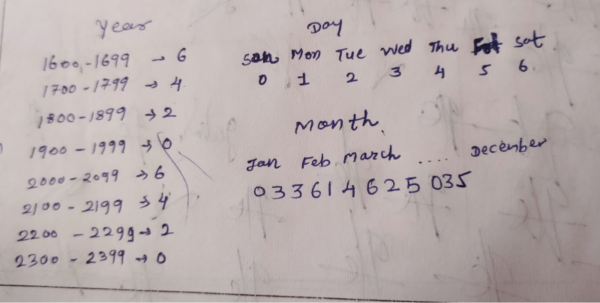 Year
1600 - 1699 → 6
1700 - 1799 → 4
1800 - 1899 → 2
1900 - 1999 → 0
2000 - 2099 → 6
2100 - 2199 → 4
2200 - 2299 → 2
2300 - 2399 → 0
Day
Sun Mon Tue Wed Thu Fri Sat
0 1 2 3 4 5 6
Month
Jan Feb March .... December
033614625035